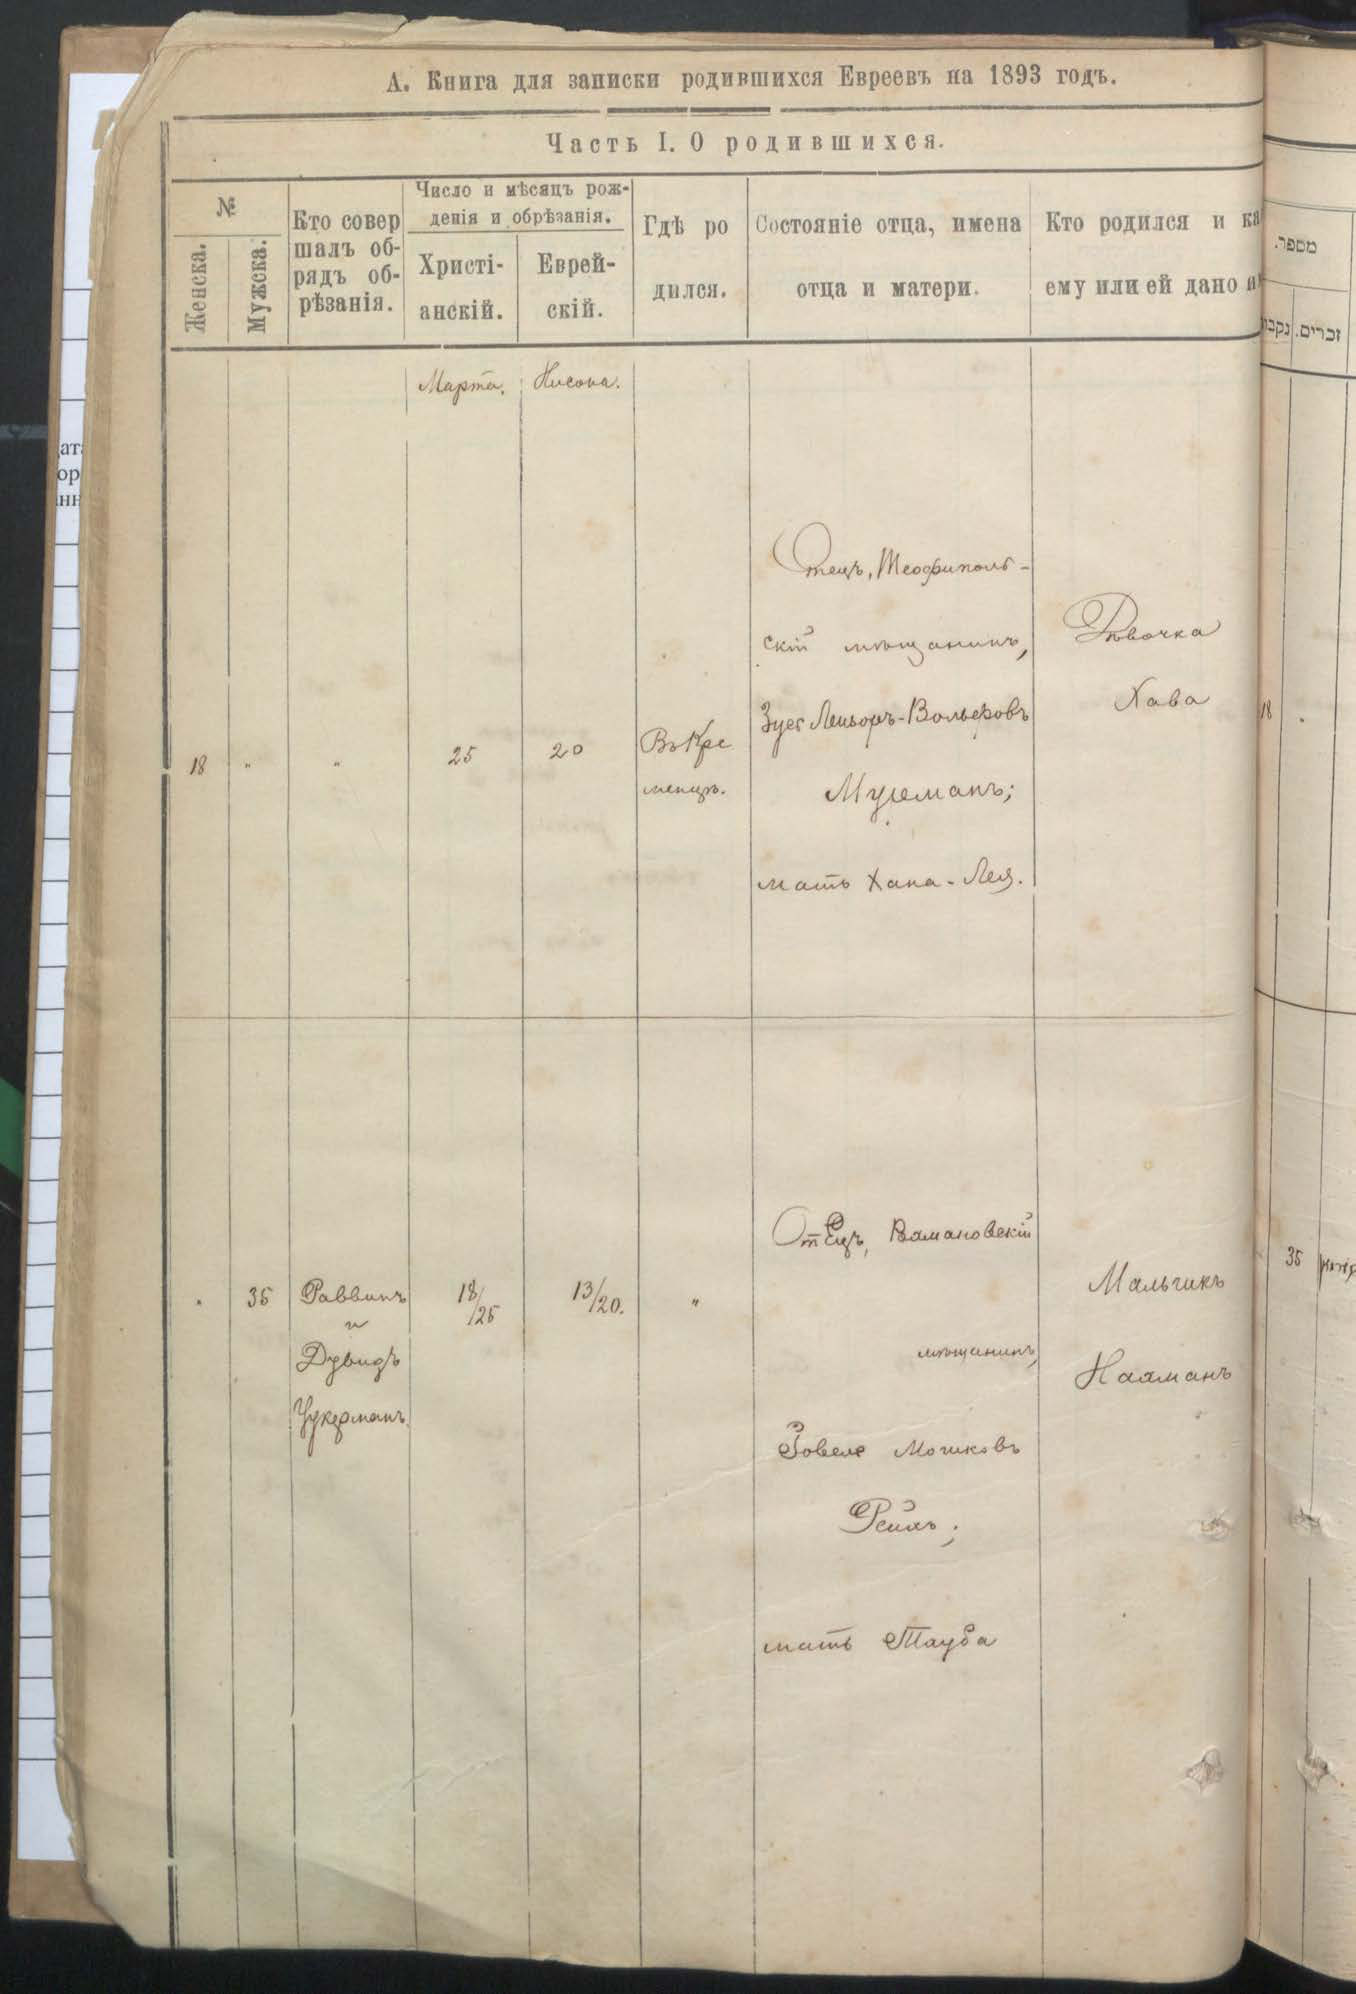 А. Книга для записки родившихся Евреевъ на 1893 годъ.
Часть I. О родившихся.
№
Женска.
Мужска.
Кто совер
шалъ об-
рядъ об-
рѣзанія.
Число и мѣсяцъ рож-
денія и обрѣзанія.
Христі-
анскій.
Еврей-
скій.
Гдѣ ро
дился.
Состояніе отца, имена
отца и матери.
Кто родился и ка
ему или ей дано
Марта.
Нисона.
18
"
"
25
20
Въ Кре
менцѣ.
Отецъ, Теофиполь-
скій мѣщанинъ,
Зусь Лейзоръ-Вольфовъ
мать Хана-Лея.
Дѣвочка
Хава
"
35
Раввинъ
и
Дувидъ
Цукерманъ.
18/25
13/20.
"
Отецъ,
мѣщанинъ,
Мошковъ
мать Тауба
Мальчикъ
Нахманъ
מספר.
זכרים.
18
35